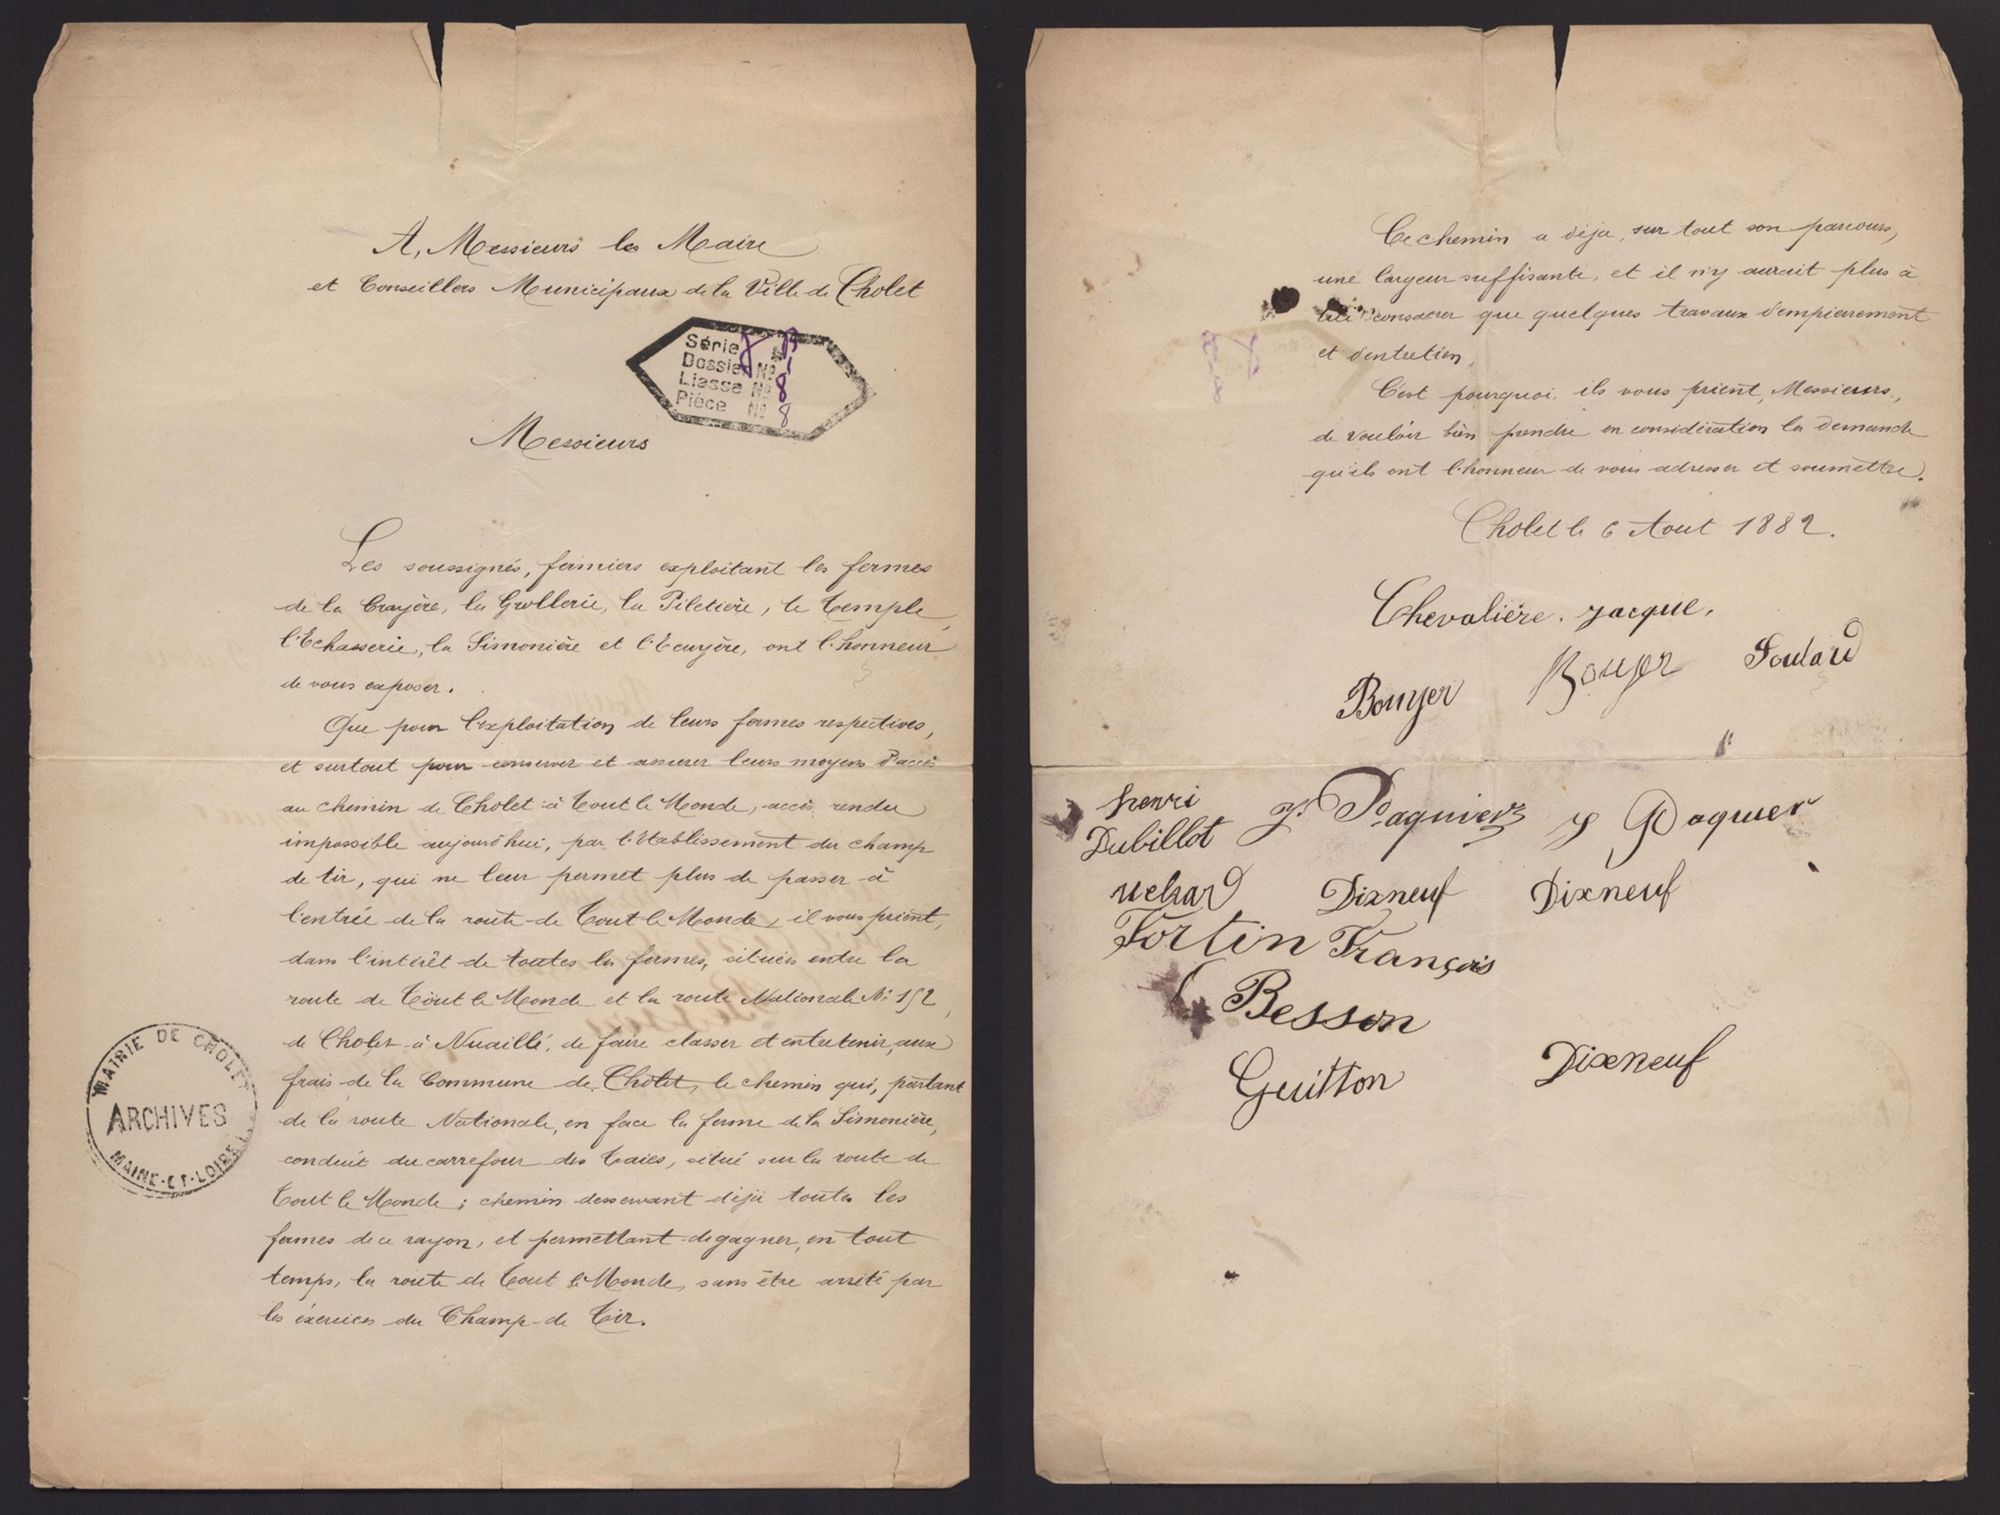 A, Messieurs les Maire
et Conseillers Municipaux de la Ville de Cholet
Série
Dossier Nº 1
Liasse Nº 8
Pièce Nº 8
Messieurs
Les soussignés, fermiers exploitant les fermes
de la Crayère, la Grollerie, la Piletière, le Temple,
l'Echasserie, la Simonière et l'Ecuyère, ont l'honneur
de vous exposer.
Que pour l'exploitation de leurs fermes respectives,
et surtout pour conserver et assurer leurs moyens d'accès
au chemin de Cholet à Tout le Monde, accès rendu
impossible aujourd'hui, par l'établissement du champ
de tir, qui ne leur permet plus de passer à
l'entrée de la route de Tout le Monde, il vous prient,
dans l'intérêt de toutes les fermes, situées entre la
route de Tout le Monde et la route Nationale Nº 152,
de Cholet à Nuaillé, de faire classer et entretenir, aux
frais de la Commune de Cholet, le chemin qui, partant
de la route Nationale, en face la ferme de la Simonière,
conduit du carrefour des Taies, situé sur la route de
Tout le Monde; chemin desservant déjà toutes les
fermes de ce rayon, et permettant de gagner, en tout
temps, la route de Tout le Monde, sans être arrêté par
les éxercices du Champ de Tir.
MAIRIE DE CHOLET
ARCHIVES
MAINE-ET-LOIRE
Ce chemin a déja, sur tout son parcours,
une largeur suffisante, et il n'y aurait plus à
lui consacrer que quelques travaux d'empierrement
et d'entretien.
C'est pourquoi, ils vous prient, Messieurs,
de vouloir bien prendre en considération la demande
qu'ils ont l'honneur de vous adresser et soumettre.
Cholet le 6 Aout 1882.
Chevalière. jacque.
Bouyer Bouyer Soulard
henri
Dubillot J. Paquier y Paquer
Dixneuf Dixneuf
Fortin François
Besson
Guitton Dixneuf